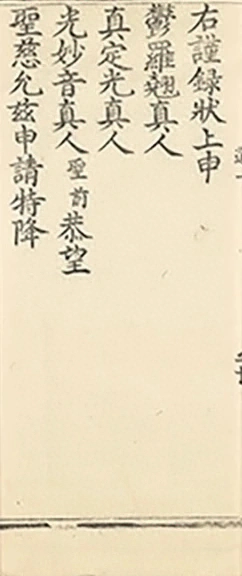 右謹録狀上申
鬱羅翹真人
真定光真人
光妙音真人聖前恭望
聖慈允兹申請特降